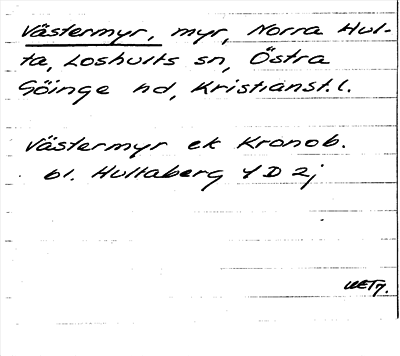 Västermyr, myr, Norra Hul-
ta, Loshults sn, Östra
Göinge hd, Kristianst. l.
Västermyr ek Kronob.
bl. Hultaberg 4D 2j